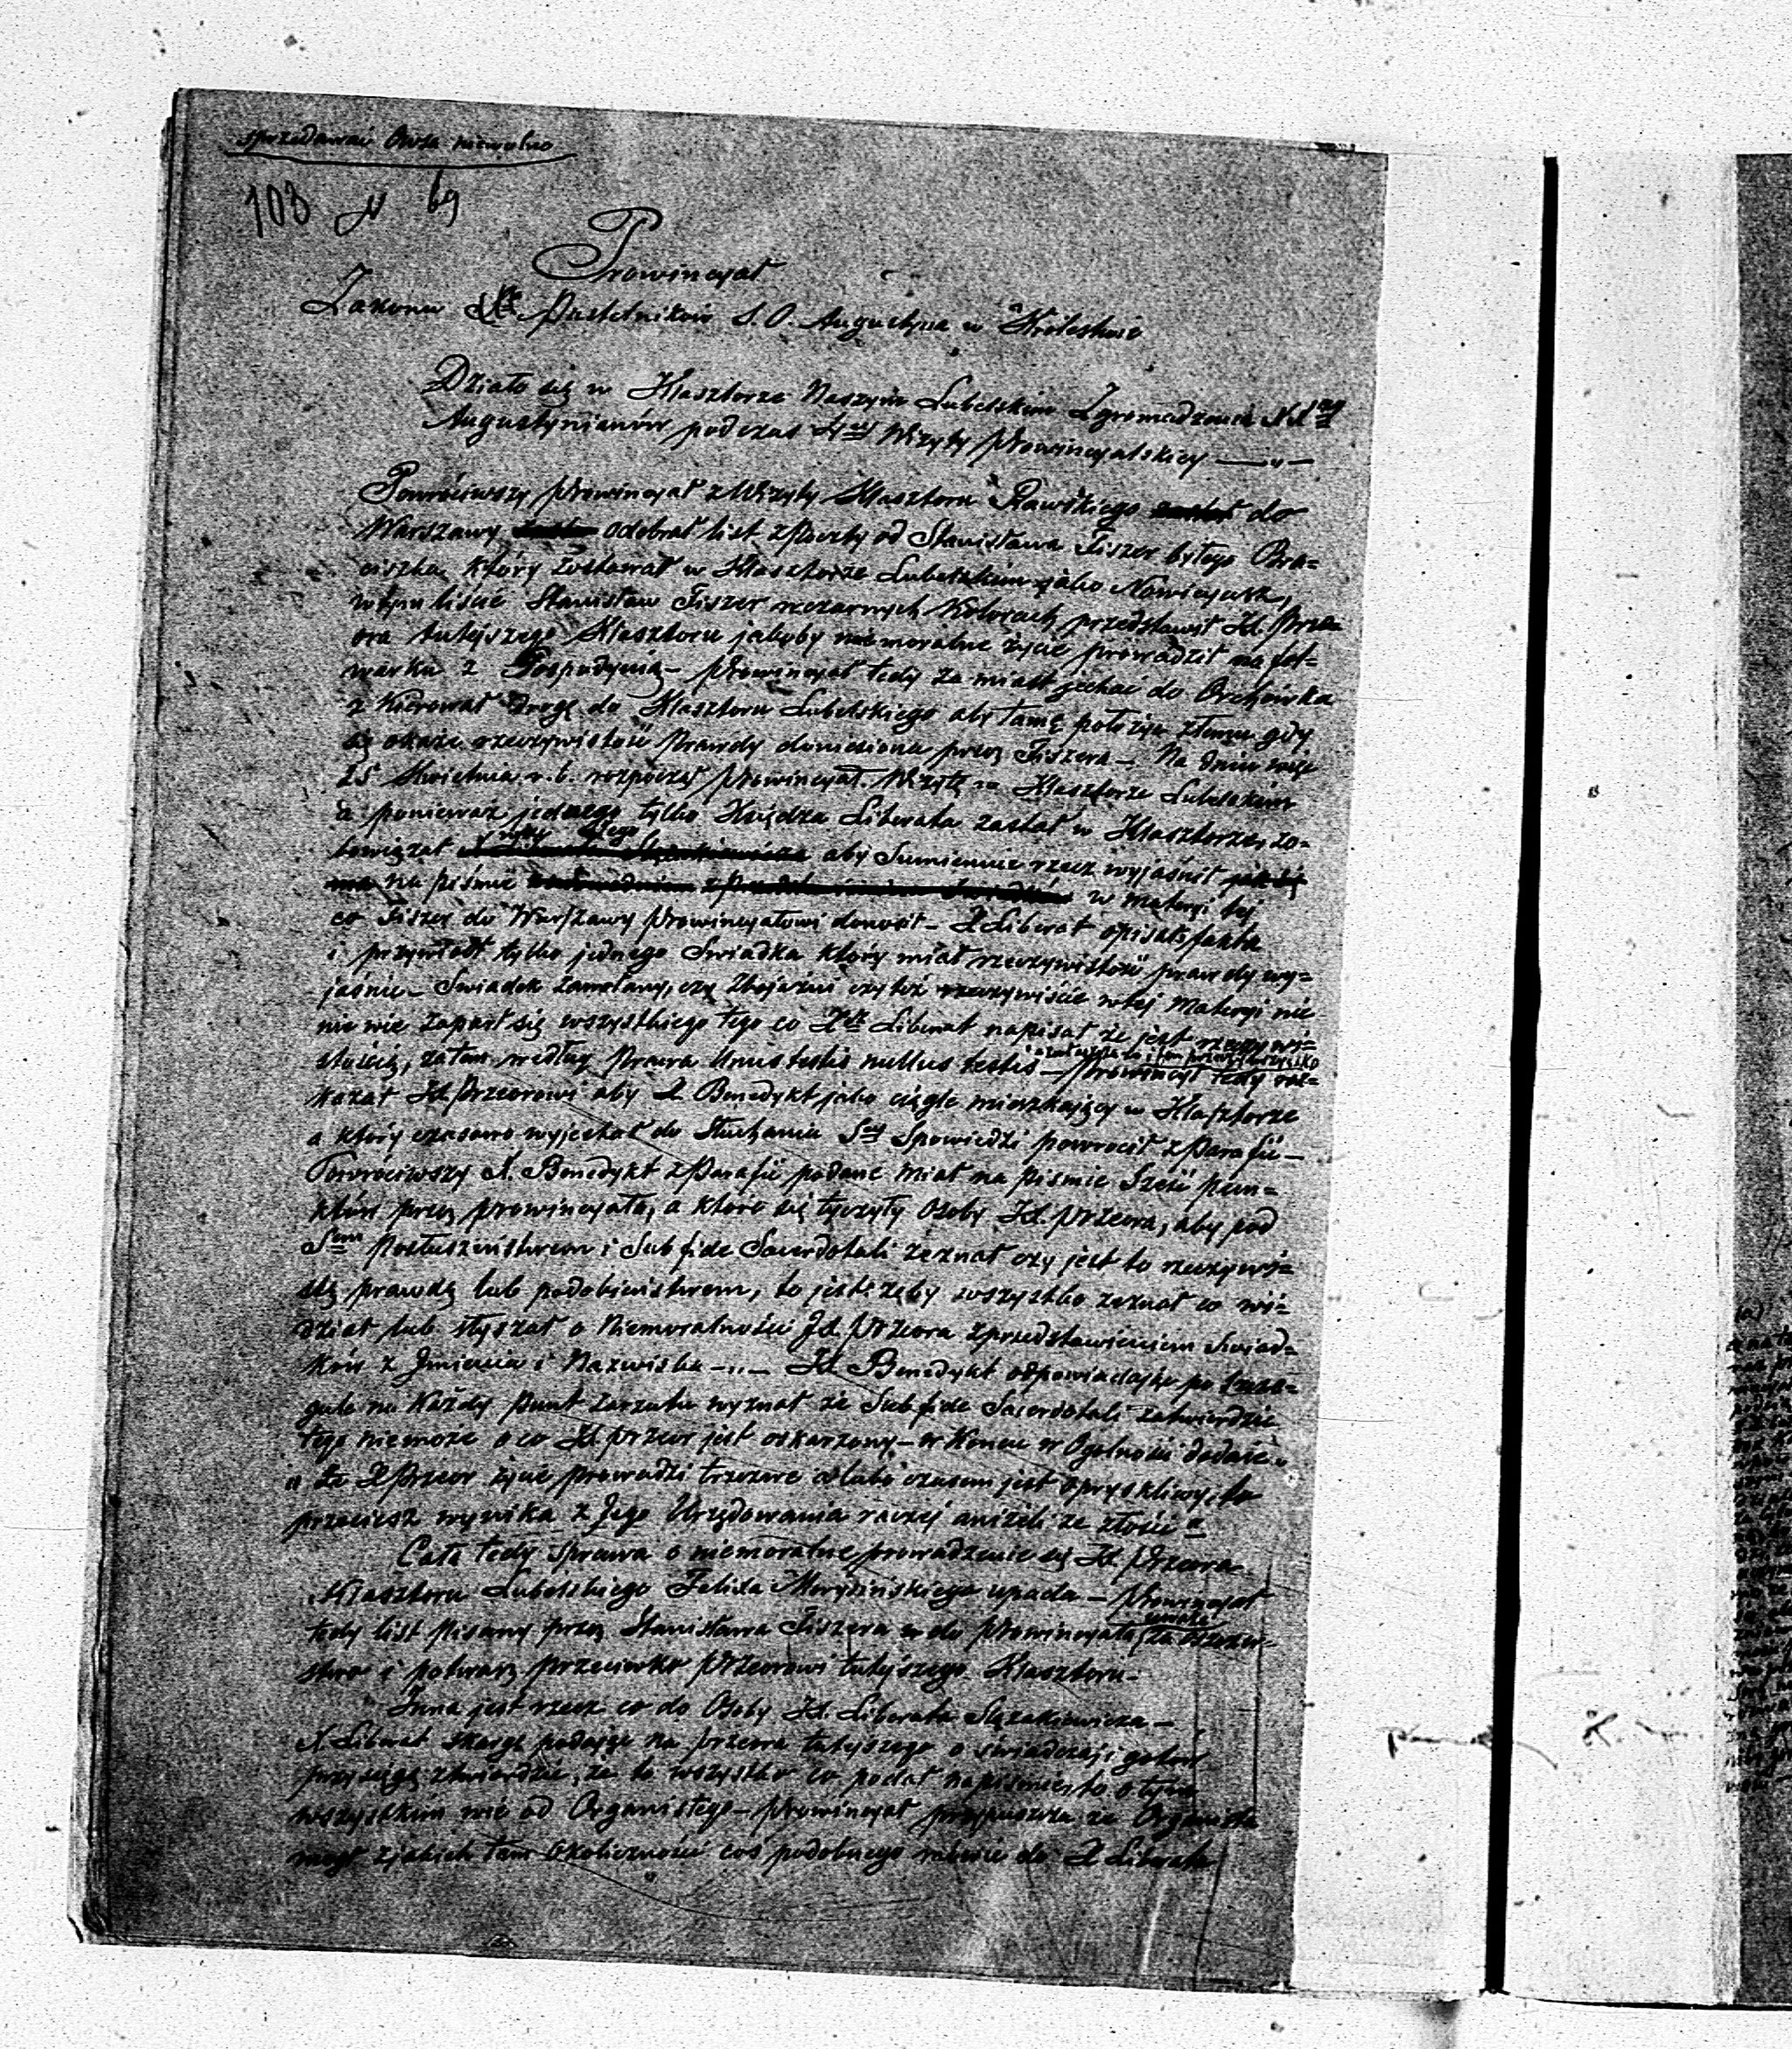 sprzedawać Owsa niewolno
103 N 69
Prowincyał
Zakonu XX. Pustelników S. O. Augustyna w Królestwie
Działo się w Klasztorze Naszym Lubelskim Zgromadzenia
Augustyniánów podczas Wizyty Prowincyalskiey —„—
Powróciwszy Prowincyał z Wizyty Klasztoru Rawskiego do
Warszawy odebrał list z Poczty od Stanisława Fiszer byłego Bra=
ciszka który zostawał w Klasztorze Lubelskim jako Nowicyusz,
w tym liście Stanisław Fiszer w czarnych Kolorach przedstawił Xd. Prze=
ora tutejszego Klasztoru jakoby niemoralne życie prowadził na fol=
warku z Gospodynią — Prowincyał tedy za miast jechać do Orchówka
z Kierował drogę do Klasztoru Lubelskiego aby tamę położyć złemu gdy
się okaże rzeczywistość Prawdy doniesiona przez Fiszera — Na dniu więc
25 Kwietnia r. b. rozpoczął Prowincyał Wizytę w Klasztorze Lubelskim
a ponieważ jednego tylko Księdza Liberata zastał w Klasztorze, zo=
bowiązał aby Sumiennie rzecz wyjaśnił
na piśmie w materyi tej
co Fiszer do Warszawy Prowincyałowi donosił — X Liberat opisał fakta
i przywiódł tylko jednego Swiadka który miał rzeczywistość prawdy wy=
jaśnić — Swiadek zawołany, czy z bojaźni czy też rzeczywiście w tej Materyi nic
nie wie zaparł się wszystkiego tego co Liberat napisał że jest rzeczywi=
stością, zatem według Prawa Unus testis nullus testis — Prowincyał tedy roz=
kazał Xd. Przeorowi aby X. Benedykt jako ciągle mieszkający w Klasztorze
a który czasowo wyjechał do Słuchania Spowiedzi powrócił z Parafii —
Powróciwszy X. Benedykt z Parafii podane miał na piśmie Sześć pun=
któw przez Prowincyała, a które się tyczyły Osoby Xd. Przeora, aby pod
Posłuszeństwem i Sub fide Sacerdotali zeznał czy jest to rzeczywi=
stą prawdą lub podobieństwem, to jest: żeby wszystko zeznał co wi=
dział lub słyszał o Niemoralności Xd. Przeora z przedstawieniem Swiad=
ków z Imienia i Nazwiska —„— Xd. Benedykt odpowiadając po szcze=
gule na Każdy Punt Zarzutu wyznał że Sub fide Sacerdotali zatwierdzić
tego niemoże o co Xd. Przeor jest oskarżony — w Koncu w Ogolności dodaje „
„ że X Przeor życie prowadzi trzezwe a lubo czasem jest opryskliwy, to
przeciesz wynika z Jego Urzędowania raczej aniżeli ze złości "
Cała tedy Sprawa o niemoralne prowadzenie się Xd. Przeora
Klasztoru Lubelskiego Felixa upada — Prowincyał
tedy list Pisany przez Stanisława Fiszera do Prowincyała, uważa za oszczer=
stwo i potwarz przeciwko Przeorowi tutejszego Klasztoru —
Inna jest rzecz co do Osoby Xd. Liberata —
X. Liberat skargę podając na Przeora tutejszego oświadczał i gotów
przysięgą ztwierdzić, że to wszystko co podał napiśmie, to o tym
wszystkim wie od Organistego — Prowincyał przypuszcza że Organista
mógł z jakich tam Okoliczności coś podobnego mówić do X Liberata